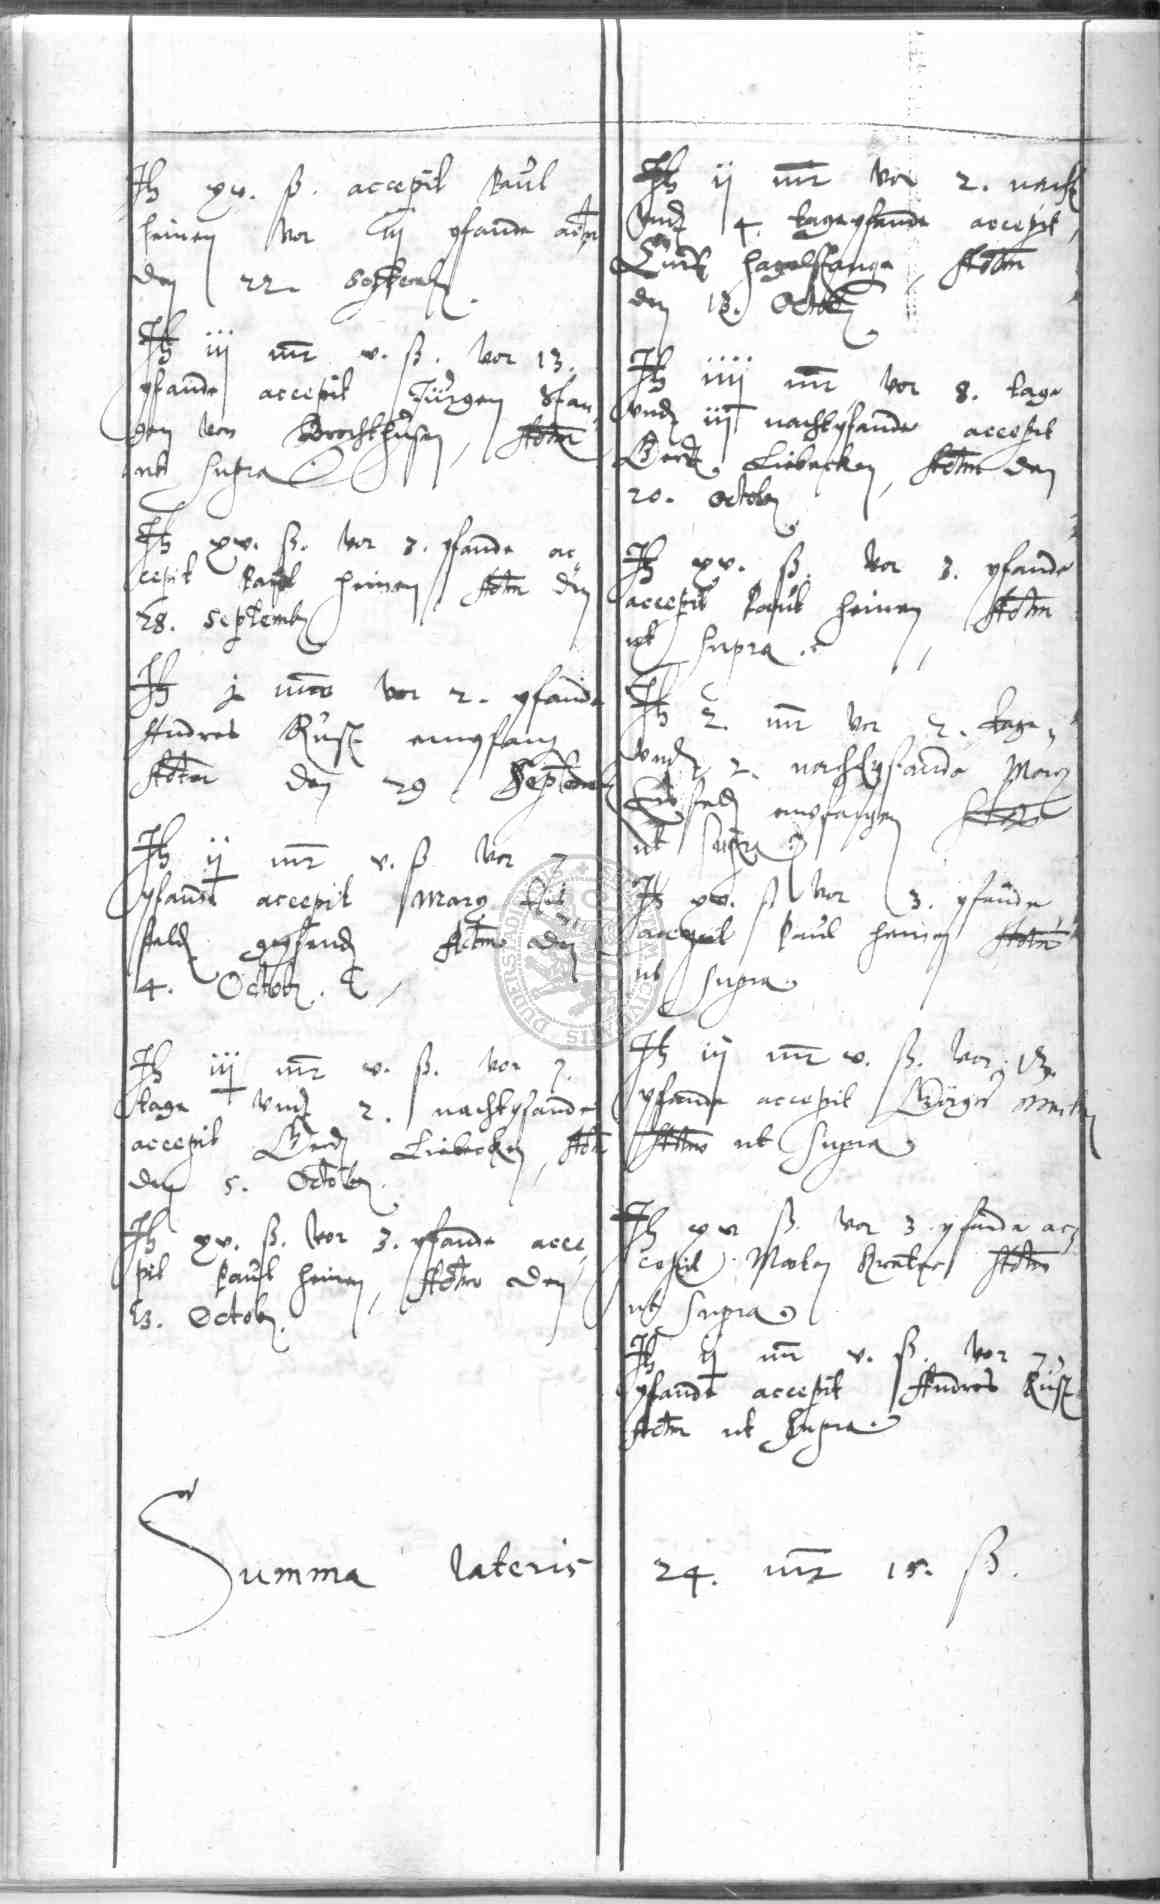 It xv. ß. accepit Paul
heinen vor iij pfande actm
den 22. Septemb
It iij mr v. ß. vor 13.
pfande accepit Jürgen Stan
gen von Brochthusen, Actm
ut supra
It xv. ß. vor 3. pfande ac
cepit Paul heinen, Actm den
28. Septemb
It j mr vor 2. pfande
Andres Rust empfang
Actm den 29 Septemb
It ij mr v. ß vor 7
pfande accepit Marg
feldt Actm den
4. Octob.
It iij mr v. ß. vor 7.
tage vnd 2. nachtpfande
accepit Gerdt Liebecken, Actm
den 5. Octob.
It xv. ß. vor 3. pfande acce
pit Paul heinen, Actm den
13. Octob.
It ij mr vor 2. nacht
vnd 4. tagepfande accepit
Curdt hagelstange, Actm
den 13. Octob
It iiij mr vor 8. tage
vnd iij nachtpfande accepit
Gerdt Liebecken, Actm den
20. Octob
It xv. ß. vor 3. pfande
accepit Paul heinen, Actm
ut supra.
It 2. mr vor 2. tage
vnd 2. nachtpfande Marg
empfangen Actm
ut supra
It xv. ß vor 3. pfande
accepit Paul heinen Actm
ut supra
It iij mr v. ß. vor 13.
pfande accepit
Actm ut supra
It xv ß. vor 3. pfande ac
cepit Actm
ut supra
It ij mr v. ß. vor 7
pfande accepit Andres Rust
Actm ut supra.
Summa lateris 24. mr 15. ß.